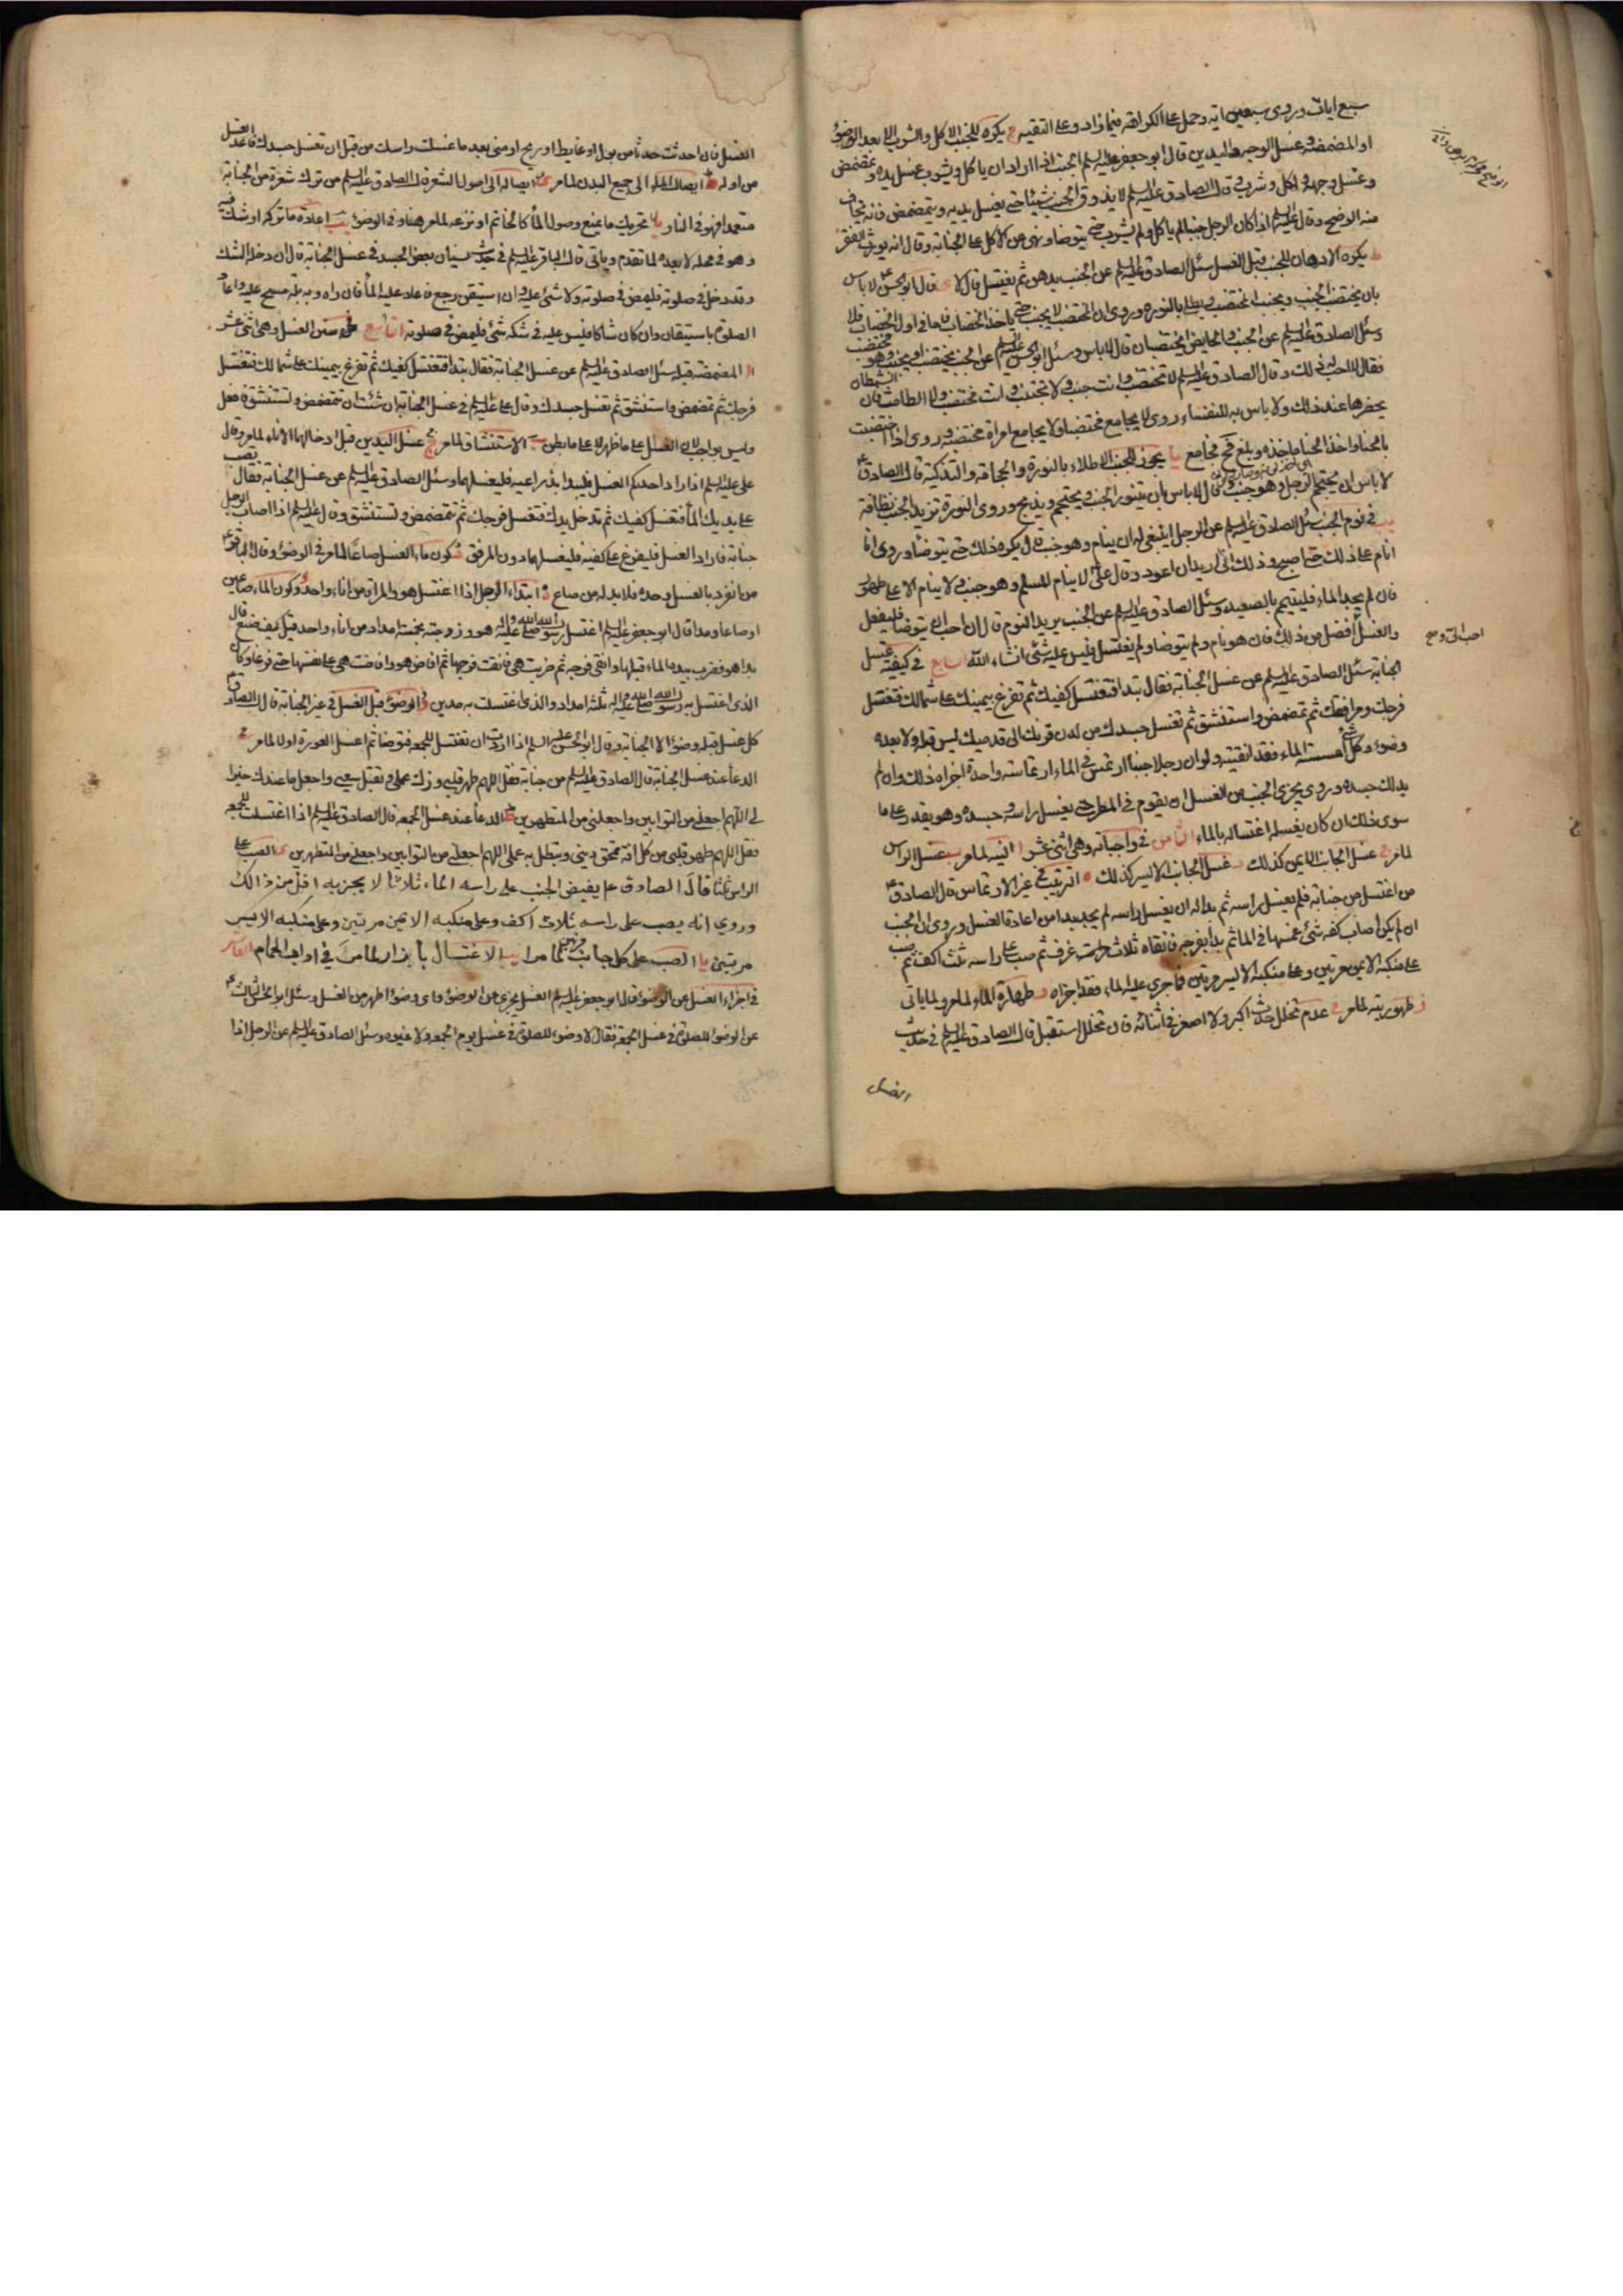 سبع ايات وروى سبعين اية وحمل على الكراهة فيما زاد وعلى التقية ح يكره للجنب الاكل والشرب الا بعد الوضوء
او المضمضة وغسل الوجه واليدين قال ابو جعفر عليه السلم الجنب اذا اراد ان ياكل ويشرب غسل يده وتمضمض
وغسل وجهه واكل وشرب وقال الصادق عليه السلم لا يذوق الجنب شيئا حتى يغسل يديه ويتمضمض فانه يخاف
منه الوضح وقال عليه السلم اذا كان الرجل جنبا لم ياكل ولم يشرب حتى يتوضا ونهى عن الاكل على الجنابة وقال انه يورث الفقر
ط يكره الادهان للجنب قبل الغسل سئل الصادق عليه السلم عن الجنب يدهن ثم يغتسل قال لا ى قال ابو الحسن ع لا باس
بان يختضب الجنب ويجنب المختضب ويطلى بالنورة وروى ان المختضب لا يجنب حتى ياخذ الخضاب فاما في اول الخضاب فلا
وسئل الصادق عليه السلم عن الجنب والحايض يختضبان قال لا باس وسئل ابو الحسن عليه السلم عن الجنب يختضب او يجنب وهو مختضب
فقال لا احب ذلك وقال الصادق عليه السلم لا تختضب وانت جنب ولا تجنب وانت مختضب ولا الطامث فان الشيطان
يحضرها عند ذلك ولا باس به للنفساء وروى لا يجامع مختضبا ولا يجامع امراة مختضبة وروى اذا اختضبت
بالحنا واخذ الحنا ماخذه وبلغ فح فجامع يا يجوز للجنب الاطلاء بالنورة والحجامة والتذكية قال الصادق ع
لا باس ان يحتجم الرجل وهو جنب وقال لا باس بان يتنور الجنب ويحتجم ويذبح وروى النورة تزيد الجنب نظافة
يب في نوم الجنب سئل الصادق عليه السلم عن الرجل اينبغى له ان ينام وهو جنب قال يكره ذلك حتى يتوضا وروى انا
انام على ذلك حتى اصبح وذلك انى اريد ان اعود وقال على لا ينام المسلم وهو جنب ولا ينام الا على طهور
فان لم يجد الماء فليتيمم بالصعيد وسئل الصادق عليه السلم عن الجنب يريد النوم قال ان احب ان يتوضا فليفعل
والغسل افضل من ذلك فان هو نام ولم يتوضا ولم يغتسل فليس عليه شئ انشاء الله السابع في كيفية غسل
الجنابة سئل الصادق عليه السلم عن غسل الجنابة فقال تبدا فتغتسل كفيك ثم تفرغ بيمينك على شمالك فتغسل
فرجك ومرافقك ثم تمضمض واستنشق ثم تغسل جسدك من لدن قرنك الى قدميك ليس قبله ولا بعده
وضوء وكل شئ امسسته الماء فقد انقيته ولو ان رجلا جنبا ارتمس في الماء ارتماسة واحدة اجزاه ذلك وان لم
يدلك جسده وروى يجزى الجنب من الغسل ان يقوم في المطر حتى يغسل راسه وجسده وهو يقدر على ما
سوى ذلك ان كان يغسله اغتساله بالماء الثامن في واجباته وهى اثنى عشر ا النية لما مر ب غسل الراس
لما مر ج غسل الجانب الايمن كذلك د غسل الجانب الايسر كذلك ه الترتيب في غير الارتماس قال الصادق ع
من اغتسل من جنابة فلم يغسل راسه ثم بدا له ان يغسل راسه لم يجد بدا من اعادة الغسل وروى ان الجنب
ان لم يكن اصاب كفه شئ غمسها في الماء ثم بدا بفرجه فانقاه ثلاث غرف ثم صب على راسه ثلث اكف ثم صب
على منكبه الايمن مرتين وعلى منكبه الايسر مرتين فما جرى عليه الماء فقد اجزاه و طهارة الماء لما مر ولما ياتى
ز طهوريته لما مر ح عدم تخلل حدث اكبر ولا اصغر في اثنائه فان تخلل استقبل قال الصادق عليه السلم في حديث
الغسل
الغسل فان احدثت حدثا من بول او غايط او ريح او منى بعد ما غسلت راسك من قبل ان تغسل جسدك فاعد الغسل
من اوله ط ايصال الماء الى جميع البدن لما مر ى ايصاله الى اصول الشعر قال الصادق عليه السلم من ترك شعرة من الجنابة
متعمدا فهو في النار يا تحريك ما يمنع وصول الماء كالخاتم او نزعه لما مر هنا وفى الوضوء يب اعادة ما تركه او شك فيه
وهو في محله لا بعده لما تقدم وياتى قال الباقر عليه السلم في حديث نسيان بعض الجسد في غسل الجنابة قال ان دخله الشك
وقد دخل في صلوته فليمض في صلوته ولا شئ عليه وان استيقن رجع فاعاد عليه الماء فان راه وبه بلة مسح عليه واعاد
الصلوة باستيقان وان كان شاكا فليس عليه في شكه شئ فليمض في صلوته التاسع في سنن الغسل وهى اثنى عشر
ا المضمضة قبله سئل الصادق عليه السلم عن غسل الجنابة فقال تبدا فتغسل كفيك ثم تفرغ بيمينك على شمالك فتغسل
فرجك ثم تمضمض واستنشق ثم تغسل جسدك وقال على عليه السلم في غسل الجنابة ان شئت ان تتمضمض وتستنشق فافعل
وليس بواجب لان الغسل على ما ظهر لا على ما بطن ب الاستنشاق لما مر ج غسل اليدين قبل ادخالهما الاناء لما مر وقال
على عليه السلم اذا اراد احدكم الغسل فليبدا بذراعيه فليغسلهما وسئل الصادق عليه السلم عن غسل الجنابة فقال تصب
على يديك الماء فتغسل كفيك ثم تدخل يدك فتغسل فرجك ثم تتمضمض وتستنشق وقال عليه السلم اذا اصاب الرجل
جنابة فاراد الغسل فليفرغ على كفيه فليغسلهما دون المرفق د كون ماء الغسل صاعا لما مر في الوضوء وقال الباقر ع
من انفرد بالغسل وحده فلا بد له من صاع ه ابتداء الرجل اذا اغتسل هو والمراة من اناء واحد وكون الماء صاعين
او صاعا ومدا قال ابو جعفر عليه السلم اغتسل رسول الله صلى الله عليه واله هو وزوجته بخمسة امداد من اناء واحد قيل كيف صنع قال
بدا هو فضرب بيده الماء قبلها وانقى فرجه ثم ضربت هى فانقت فرجها ثم افاض هو وافاضت هى على نفسها حتى فرغا وكان
الذى اغتسل به رسول الله صلى الله عليه واله ثلثة امداد والذى اغتسلت به مدين و الوضوء قبل الغسل في غير الجنابة قال الصادق ع
كل غسل قبله وضوء الا الجنابة وقال ابو الحسن عليه السلم اذا اردت ان تغتسل للجمعة فتوضا ثم اغسل العورة اولا لما مر ح
الدعا عند غسل الجنابة قال الصادق عليه السلم من جنابة فقل اللهم طهر قلبى وزك عملى وتقبل سعيى واجعل ما عندك خيرا
لى اللهم اجعلنى من التوابين واجعلنى من المتطهرين ط الدعا عند غسل الجمعة قال الصادق عليه السلم اذا اغتسلت للجمعة
فقل اللهم طهر قلبى من كل افة تمحق دينى وتبطل به عملى اللهم اجعلنى من التوابين واجعلنى من المتطهرين ى الصب على
الراس ثلثا قال الصادق ع يفيض الجنب على راسه الماء ثلاثا لا يجزيه اقل من ذالك
وروي انه يصب على راسه ثلاث اكف وعلى منكبه الايمن مرتين وعلى منكبه الايسر
مرتين يا الصب على كل جانب مرتين لما مر يب الاغتسال بازار لما مر في اداب الحمام العاشر
في اجزاء الغسل عن الوضوء قال ابو جعفر عليه السلم الغسل يجزى عن الوضوء واى وضوء اطهر من الغسل وسئل ابو الحسن الثالث ع
عن الوضوء للصلوة في غسل الجمعة فقال لا وضوء للصلوة في غسل يوم الجمعة ولا غيره وسئل الصادق عليه السلم عن الرجل اذا